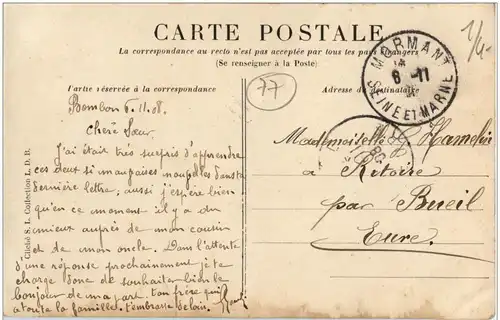 CARTE POSTALE
La correspondance au recto n'est pas acceptée par tous les pays étrangers
(Se renseigner à la Poste)
Partie réservée à la correspondance
Adresse du destinataire
MORMANT
6 - 11
SEINE ET MARNE
77
Bombon 6.11.08.
Chère Sœur,
J'ai était très surpris d'apprendre
ces deux si mauvaises nouvelles dans ta
dernière lettre; aussi j'espère bien
qu'en ce moment il y a du
mieux auprès de mon cousin
et de mon oncle. Dans l'attente
d'une réponse prochainement je te
charge donc de souhaiter bien le
bonjour de ma part ton frère qui
a toute la famille. t'embrasse de loin.
Mademoiselle G. Hamelin
à Retoire
par Bueil
Eure.
Cliché S. L. Collection L. D. B.